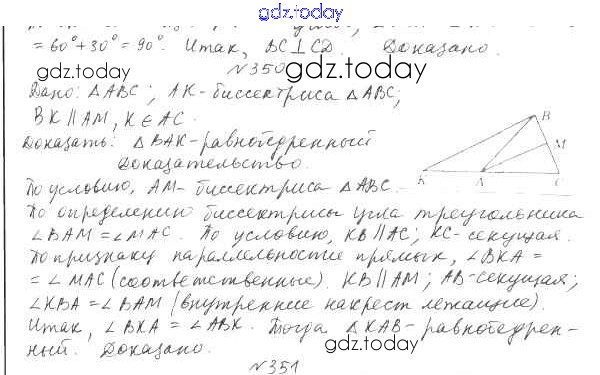 gdz.today
= 60° + 30° = 90°. Итак, BC ⊥ CD. Доказано.
gdz.today
N350 gdz.today
Дано: △ABC; AK - биссектриса △ABC;
BK ∥ AM, K ∈ AC.
Доказать: △BAK - равнобедренный
Доказательство.
По условию, AM - биссектриса △ABC.
По определению биссектрисы угла треугольника
∠BAM = ∠MAC. По условию, KB ∥ AC; KC - секущая.
По признаку параллельности прямых, ∠BKA =
= ∠MAC (соответственные). KB ∥ AM; AB - секущая;
∠KBA = ∠BAM (внутренние накрест лежащие).
Итак, ∠BKA = ∠ABK. Тогда △KAB - равнобедрен-
ный. Доказано.
gdz.today
N351
B
M
K
A
C
gdz.today